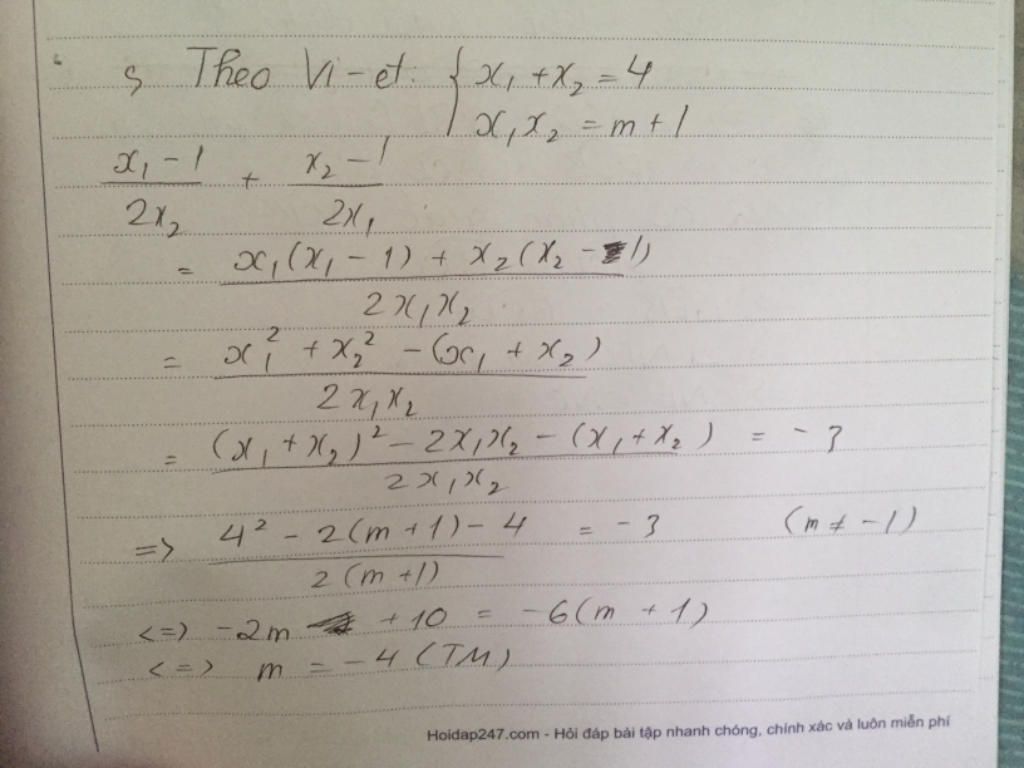 s Theo Vi-et: { x₁ + x₂ = 4
x₁x₂ = m + 1
(x₁ - 1)/(2x₂) + (x₂ - 1)/(2x₁)
= (x₁(x₁ - 1) + x₂(x₂ - 1))/(2x₁x₂)
= (x₁² + x₂² - (x₁ + x₂))/(2x₁x₂)
= ((x₁ + x₂)² - 2x₁x₂ - (x₁ + x₂))/(2x₁x₂) = -3
=> (4² - 2(m + 1) - 4)/(2(m + 1)) = -3 (m ≠ -1)
<=> -2m + 10 = -6(m + 1)
<=> m = -4 (TM)
Hoidap247.com - Hỏi đáp bài tập nhanh chóng, chính xác và luôn miễn phí